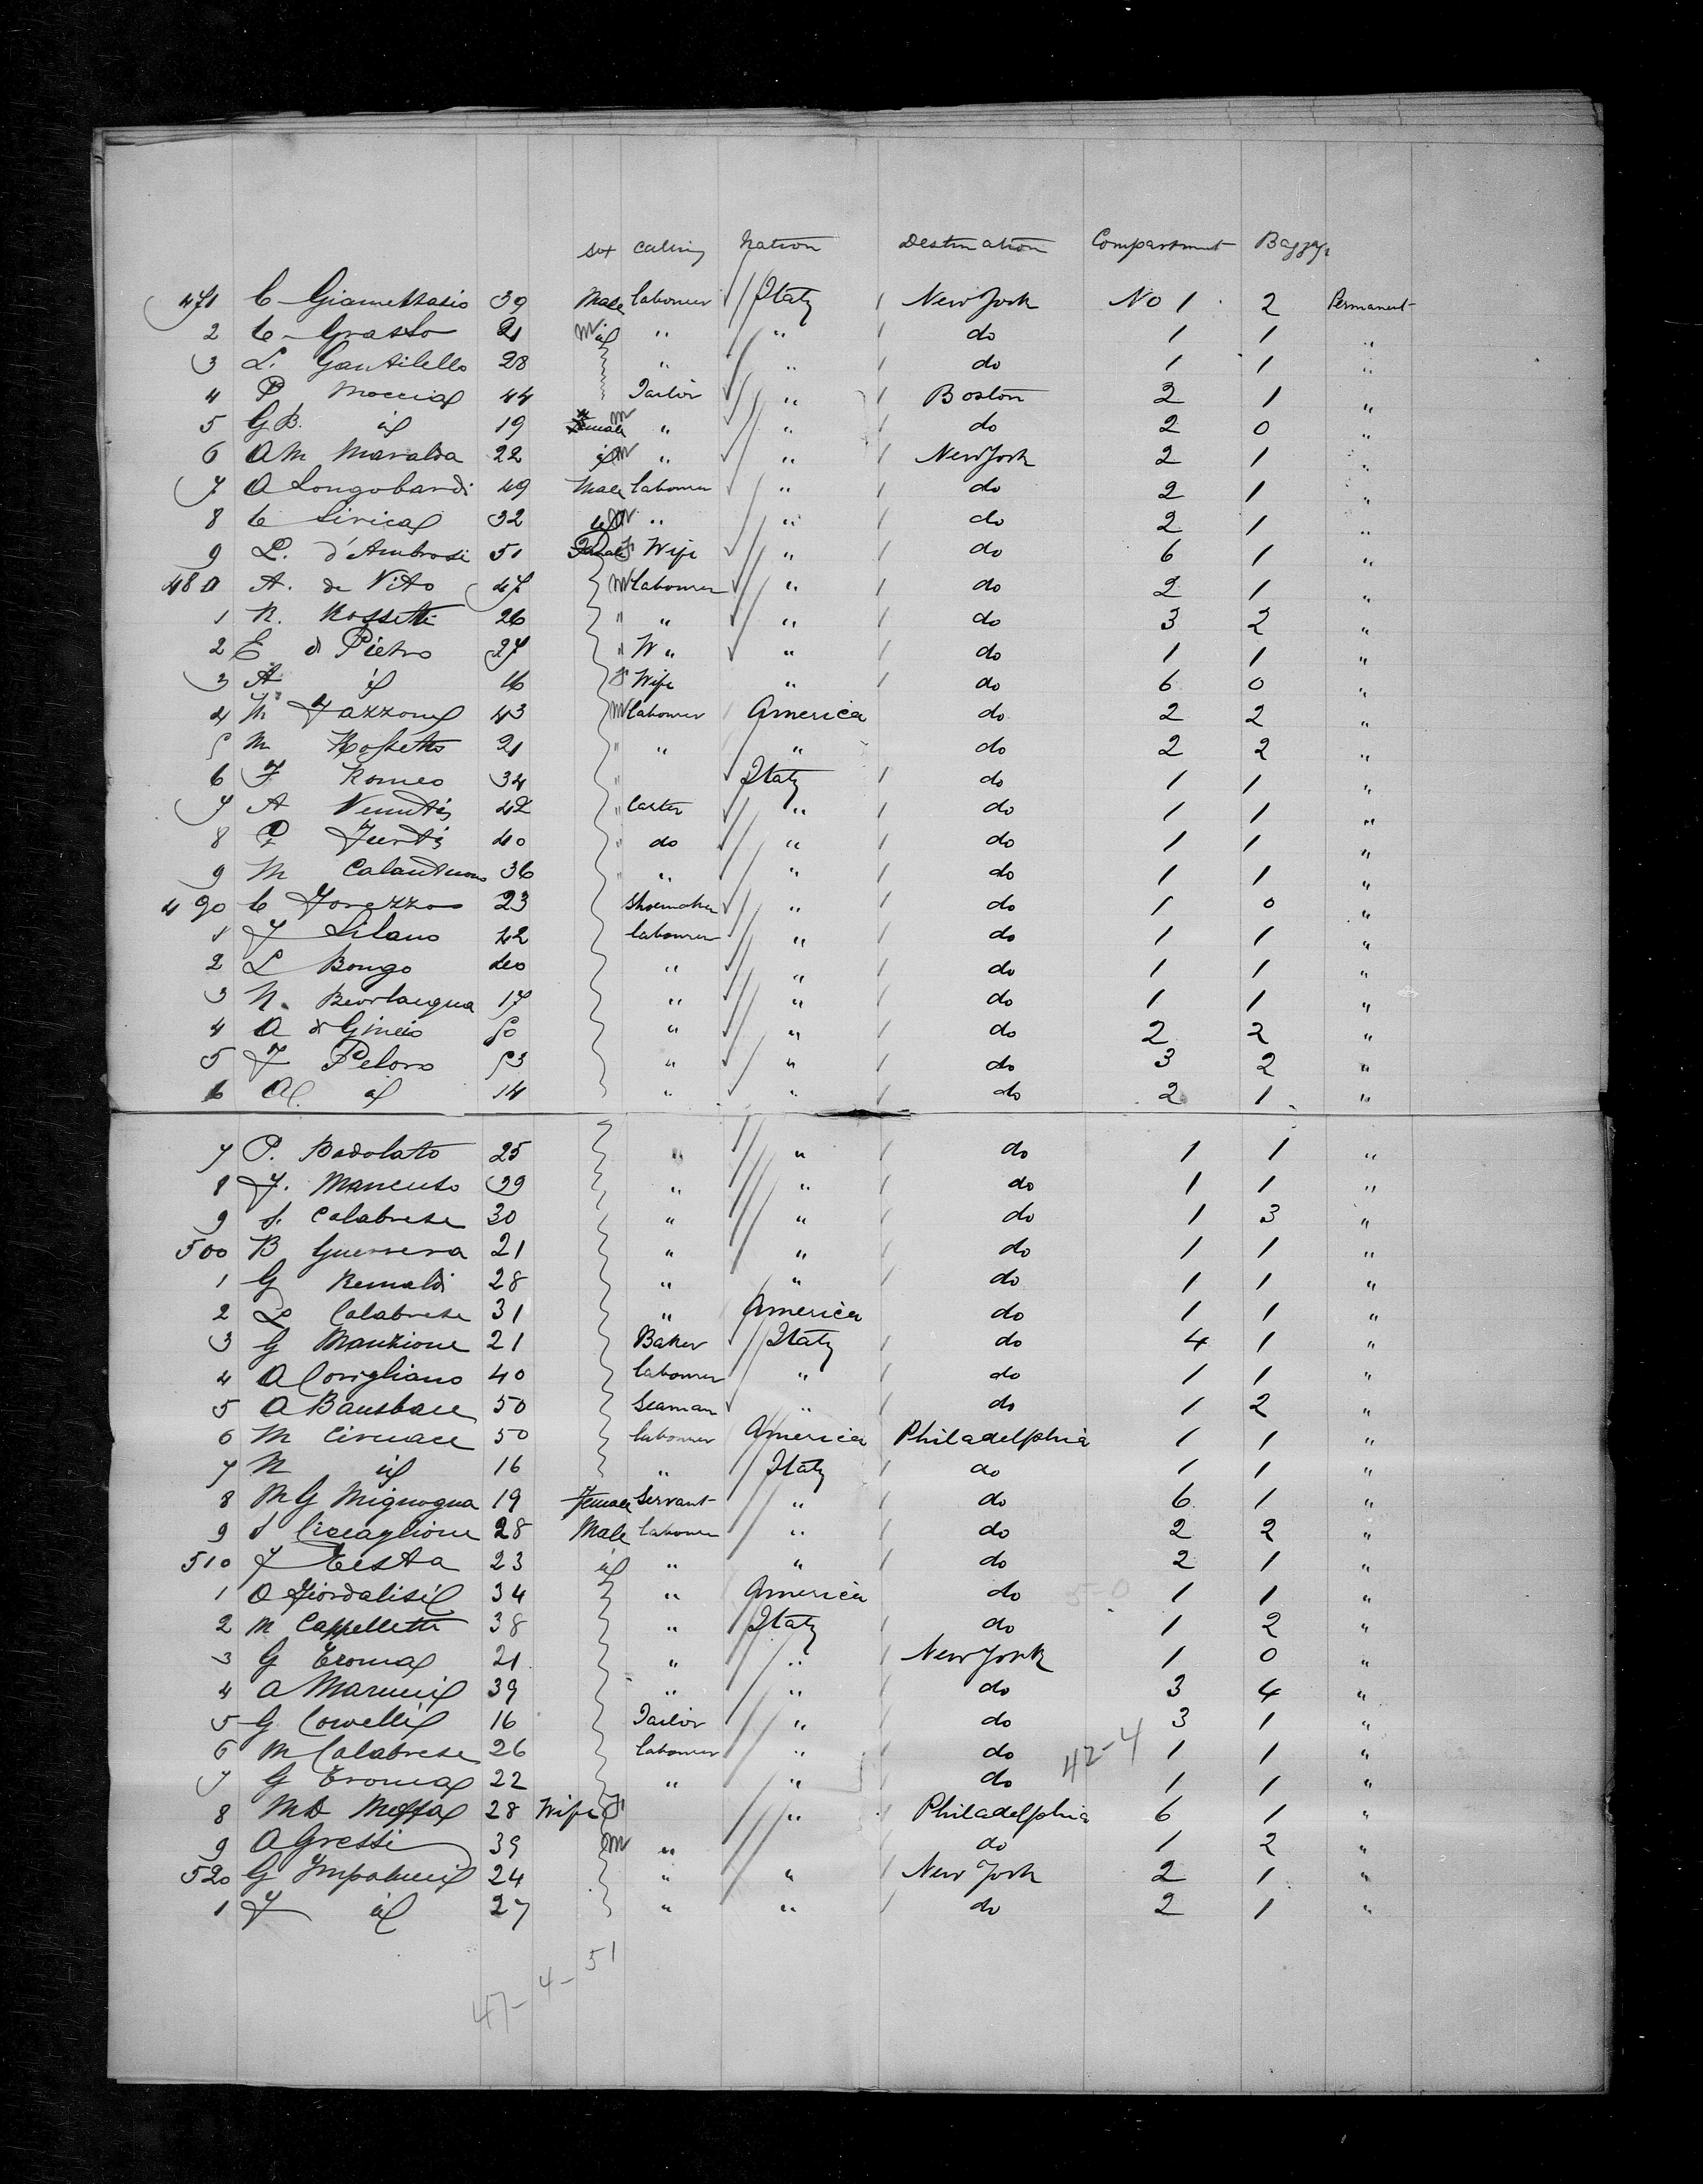 Sex Calling Nation Destination Compartment Baggage
471 C Giamettasio 39 Male labourer Italy 1 New York No 1 2 Permanent
2 C Grasso 21 M id " " 1 do 1 1 "
3 L. Gantilello 28 " " 1 do 1 1 "
4 P Moccia 44 Tailor " 1 Boston 2 1 "
5 G B. id 19 Female M " " 1 do 2 0 "
6 A M Maralda 22 id M " " 1 New York 2 1 "
7 A Longobardi 49 Male labourer " 1 do 2 1 "
8 C Sirica 32 id M " " 1 do 2 1 "
9 L. d'Ambrosi 51 F Wife " 1 do 6 1 "
480 A. de Vito 47 M labourer " 1 do 2 1 "
1 N. Rossetti 26 " " " 1 do 3 2 "
2 E di Pietro 27 " " " 1 do 1 1 "
3 A id 16 F Wife " 1 do 6 0 "
4 M Fazzone 43 M labourer America do 2 2 "
5 M Rossetto 21 " " " do 2 2 "
6 F Romeo 34 " Italy 1 do 1 1 "
7 A 42 " Carter " 1 do 1 1 "
8 P 40 " do " 1 do 1 1 "
9 M Calantuono 36 " " " 1 do 1 1 "
490 C 23 Shoemaker " 1 do 1 0 "
1 F Silano 42 labourer " 1 do 1 1 "
2 L Bongo 40 " " 1 do 1 1 "
3 N. 17 " " 1 do 1 1 "
4 A di 50 " " 1 do 2 2 "
5 F Peloro 53 " " 1 do 3 2 "
6 Al. id 14 " " 1 do 2 1 "
7 P. Badolato 25 " " 1 do 1 1 "
8 F. Mancuso 39 " " 1 do 1 1 "
9 S. Calabrese 30 " " 1 do 1 3 "
500 B Guerrera 21 " " 1 do 1 1 "
1 G Rinaldi 28 " " 1 do 1 1 "
2 L Calabrese 31 " America do 1 1 "
3 G Manzione 21 Baker Italy 1 do 4 1 "
4 A Corigliano 40 labourer " 1 do 1 1 "
5 A 50 Seaman " 1 do 1 2 "
6 M Cirnace 50 labourer America Philadelphia 1 1 "
7 N id 16 " Italy 1 do 1 1 "
8 M G Mignogna 19 Female Servant " 1 do 6 1 "
9 S Ciccaglione 28 Male labourer " 1 do 2 2 "
510 F Testa 23 id " " 1 do 2 1 "
1 A Fiordalisi 34 " America do 1 1 "
2 M Cappelletti 38 " Italy 1 do 1 2 "
3 G Eroma 21 " " 1 New York 1 0 "
4 A Marucci 39 " " 1 do 3 4 "
5 G Corvelli 16 Tailor " 1 do 3 1 "
6 M Calabrese 26 labourer " 1 do 1 1 "
42-4
7 G Eroma 22 " " do 1 1 "
8 M D Meffa 28 Wife F " Philadelphia 6 1 "
9 A Gressi 39 M " do 1 2 "
520 G Impolucci 24 " " 1 New York 2 1 "
1 F id 27 " " 1 do 2 1 "
47-4-51